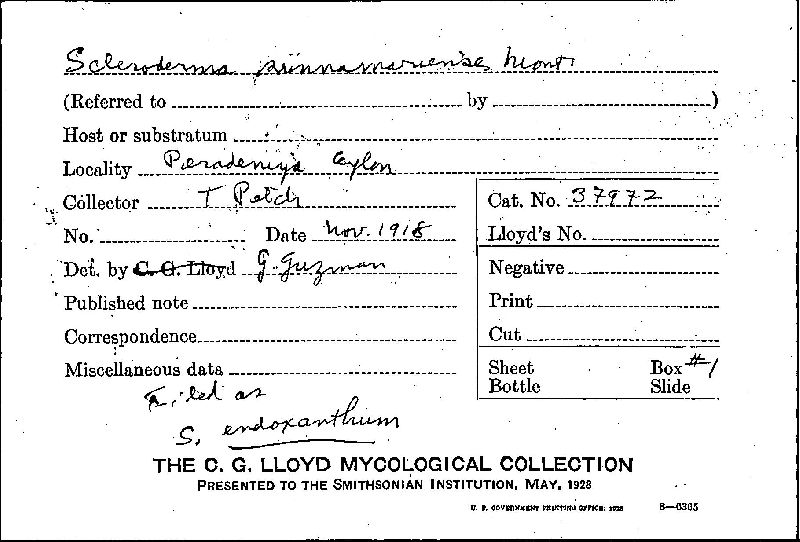 Scleroderma sinnamariense Mont.
(Referred to by )
Host or substratum
Locality Peradeniya Ceylon
Collector T Petch
No. Date Nov. 1918
Det. by C. G. Lloyd G. Guzman
Published note
Correspondence
Miscellaneous data
Filed as
S. endoxanthum
Cat. No. 37972
Lloyd's No.
Negative
Print
Cut
Sheet Box #1
Bottle Slide
THE C. G. LLOYD MYCOLOGICAL COLLECTION
PRESENTED TO THE SMITHSONIAN INSTITUTION, MAY, 1928
U. S. GOVERNMENT PRINTING OFFICE: 1928 8—6305